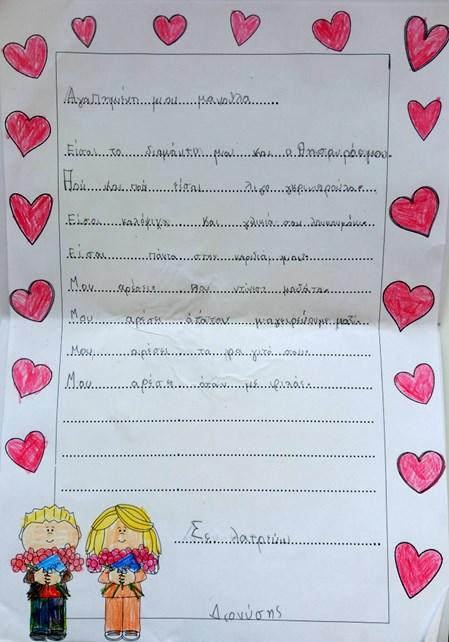 Αγαπημένη μου μανούλα
Είσαι το διαμάντι μου και ο θησαυρός μου.
Πού και πού είσαι λίγο γκρινιαρούλα.
Είσαι καλόψυχη και γλυκιά σαν λουκουμάκι.
Είσαι πάντα στην καρδιά μου.
Μου αρέσει που ντύνεσαι
Μου αρέσει όταν μαγειρεύουμε μαζί.
Μου αρέσει το φαγητό σου.
Μου αρέσει όταν με φιλάς.
Σε λατρεύω
Διονύσης